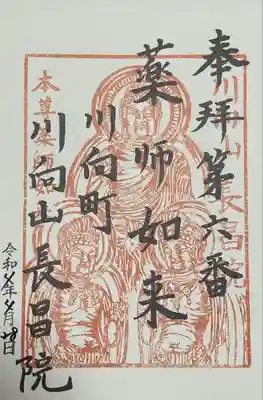 奉拝第六番
川向山長昌院
薬師如来
本尊薬師
川向町
川向山
長昌院
令和 年 月 日